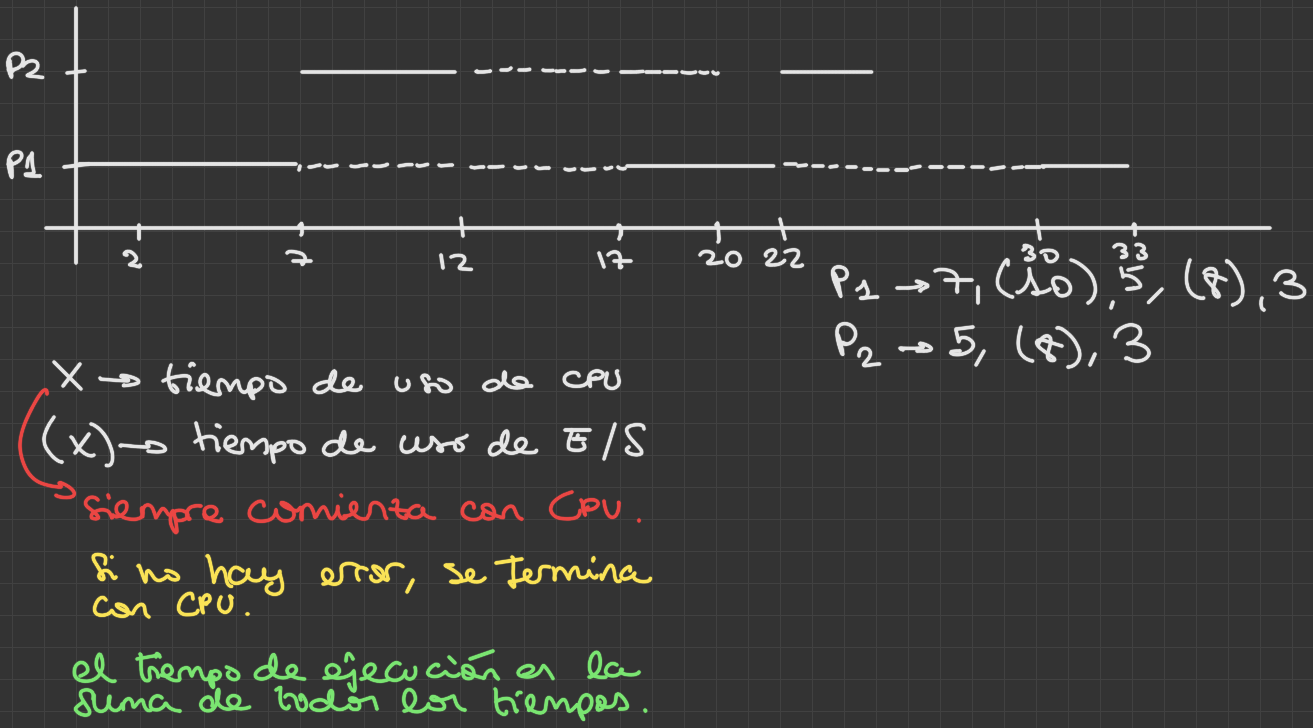 P2
P1
2 7 12 17 20 22 30 33
P1 → 7, (10), 5, (8), 3
P2 → 5, (8), 3
X → tiempo de uso de CPU
(X) → tiempo de uso de E/S
siempre comienza con CPU.
Si no hay error, se termina
con CPU.
el tiempo de ejecución es la
suma de todos los tiempos.